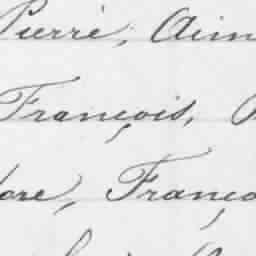 Pierre, Aim
François,
ore, Franço